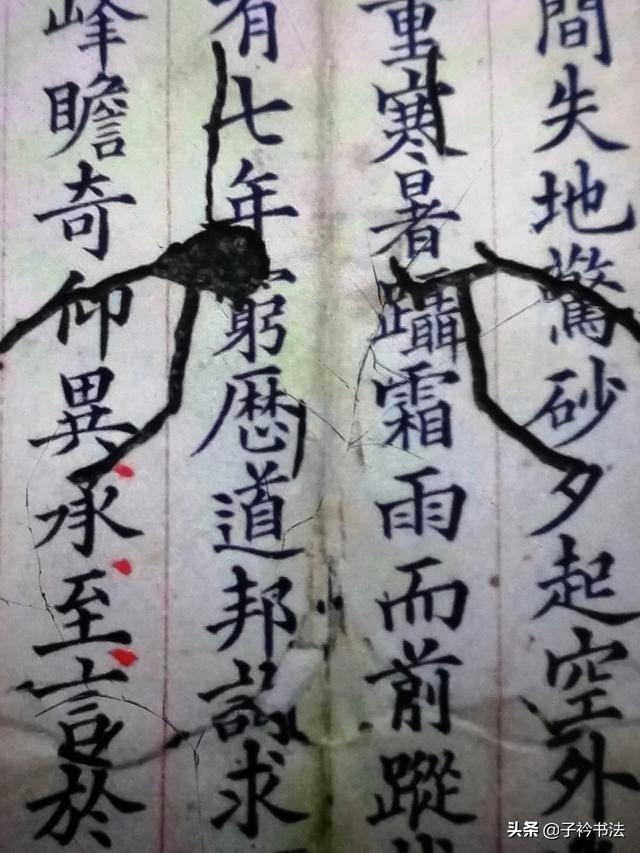 間失地驚砂夕起空外
重寒暑躡霜雨而前蹤
有七年窮歷道邦詢求
峰瞻奇仰異承至言於
头条 @子衿书法